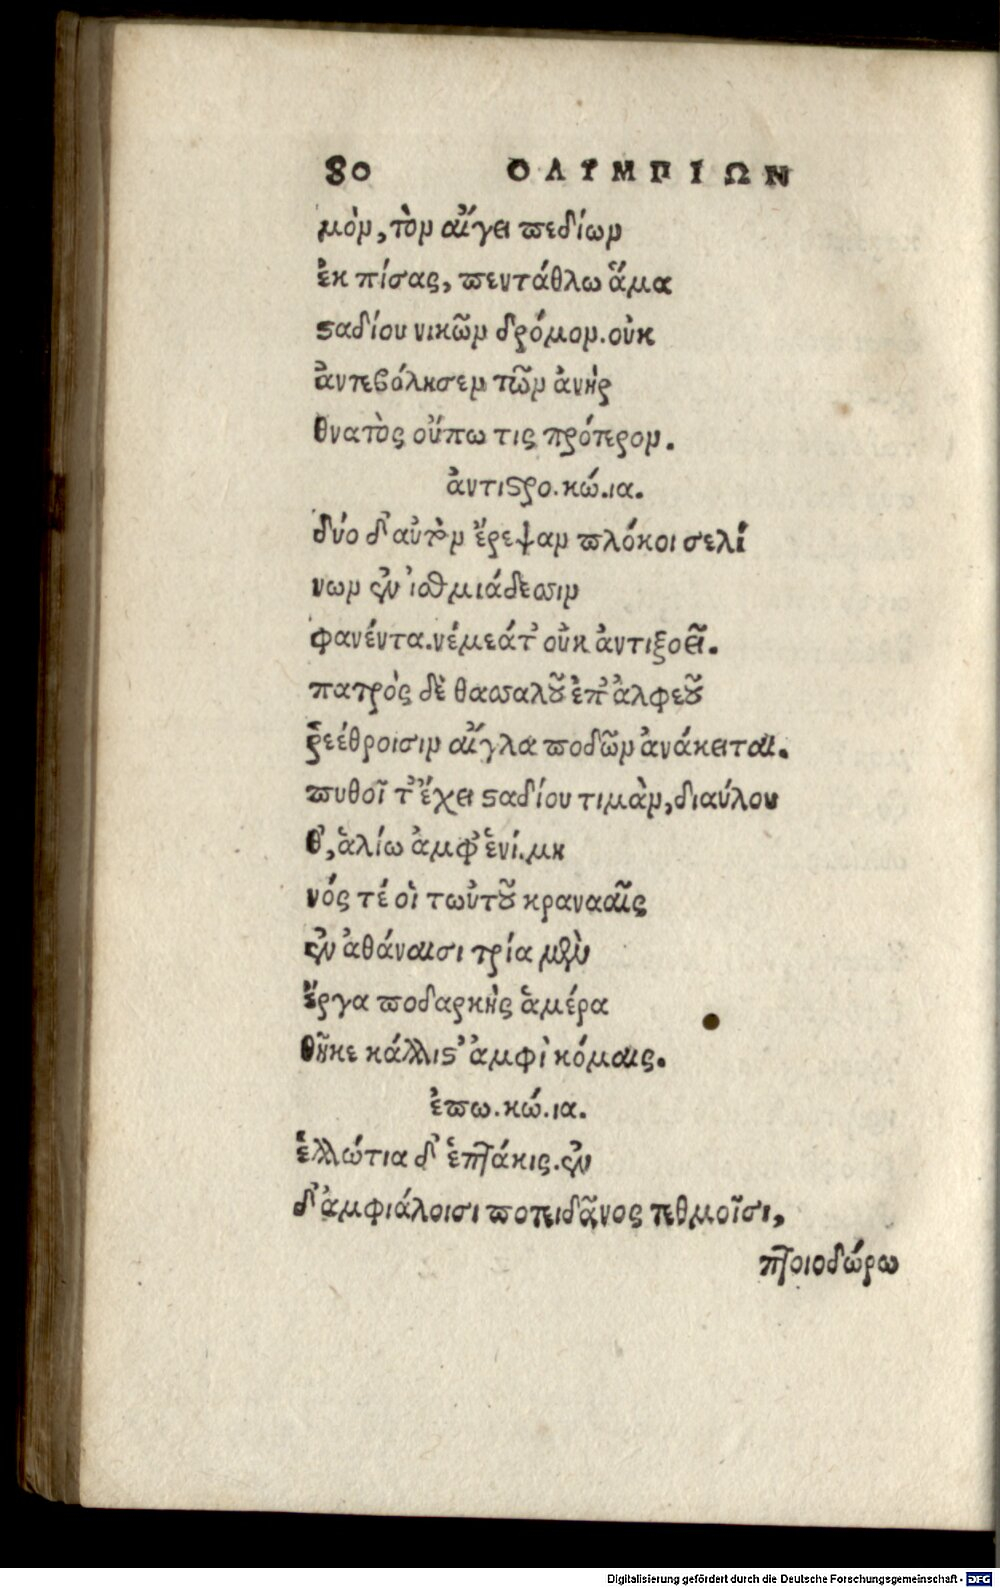 80 ΟΛΥΜΠΙΩΝ
μὸν, τὸν αἴγει πεδίων
ἐκ πίσας, πεντάθλω ἅμα
ϛαδίου νικῶν δρόμον. οὐκ
ἀντεβόλησεν τῶν ἀνὴρ
θνατὸς οὔπω τις πρότερον.
ἀντιϛρο. κώ. ια.
δύο δ' αὐτὸν ἔρεψαν πλόκοι σελί
νων ἐν ἰσθμιάδεσσιν
φανέντα. νέμεά τ' οὐκ ἀντιξοεῖ.
πατρὸς δὲ θασσαλοῦ ἐπ' ἀλφεοῦ
ῥεέθροισιν αἴγλα ποδῶν ἀνάκειται.
πυθοῖ τ' ἔχει ϛαδίου τιμὰν, διαύλου
θ', ἁλίω ἀμφ' ἑνί. μη
νός τέ οἱ τωὐτοῦ κρανααῖς
ἐν ἀθάναισι τρία μὲν
ἔργα ποδαρκὴς ἁμέρα
θῆκε κάλλιϛ' ἀμφὶ κόμαις.
ἐπω. κώ. ια.
ἑλλώτια δ' ἑπτάκις. ἐν
δ' ἀμφιάλοισι ποτειδᾶνος τεθμοῖσι,
πτοιοδώρω
Digitalisierung gefördert durch die Deutsche Forschungsgemeinschaft - DFG